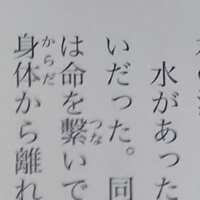 水があった
いだった。同
つな
は命を繋いで
からだ
身体から離れ